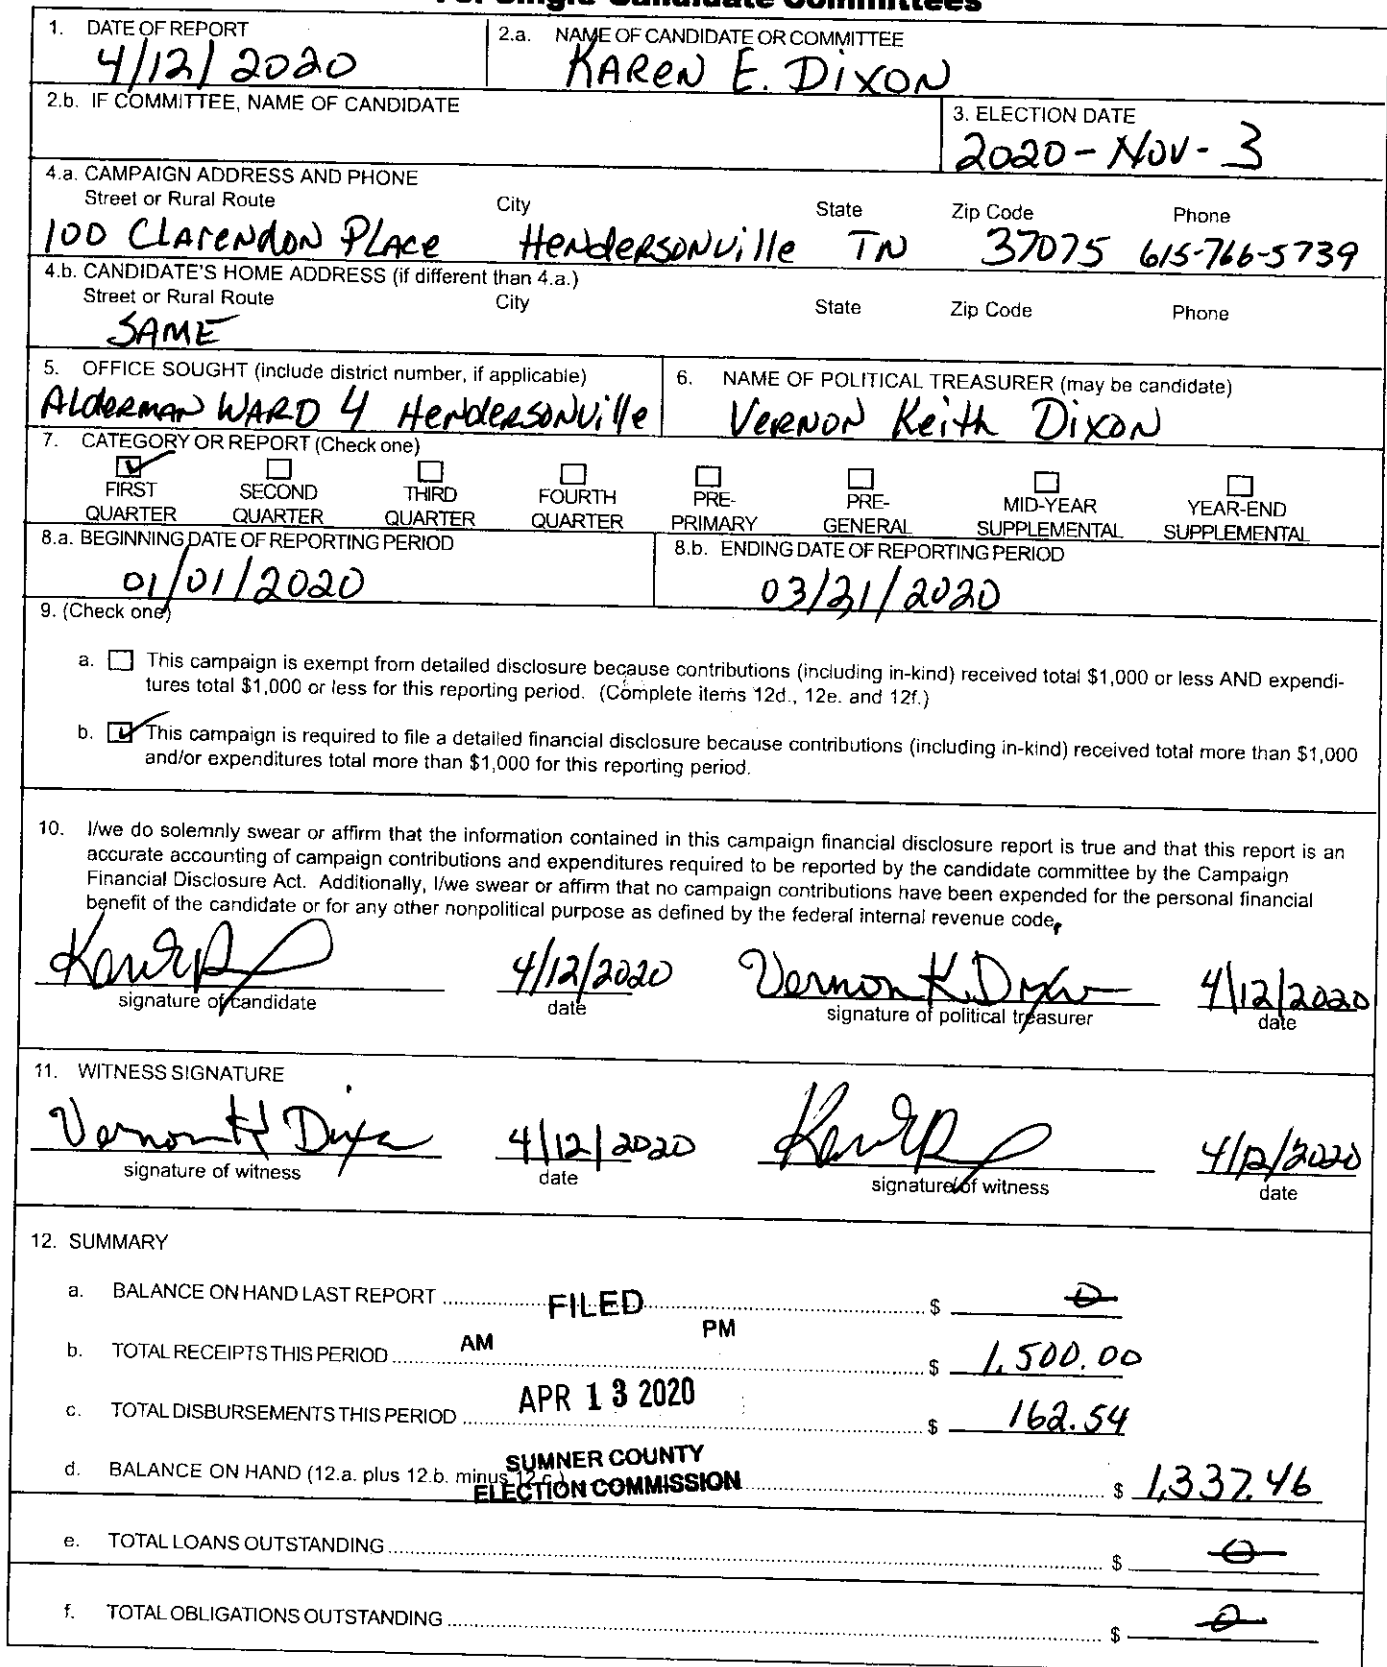 For Single-Candidate Committees
1. DATE OF REPORT
4/12/2020
2.a. NAME OF CANDIDATE OR COMMITTEE
KAREN E. DIXON
2.b. IF COMMITTEE, NAME OF CANDIDATE
3. ELECTION DATE
2020-NOV-3
4.a. CAMPAIGN ADDRESS AND PHONE
Street or Rural Route City State Zip Code Phone
100 Clarendon Place Hendersonville TN 37075 615-766-5739
4.b. CANDIDATE'S HOME ADDRESS (if different than 4.a.)
Street or Rural Route City State Zip Code Phone
SAME
5. OFFICE SOUGHT (include district number, if applicable)
Alderman WARD 4 Hendersonville
6. NAME OF POLITICAL TREASURER (may be candidate)
Vernon Keith Dixon
7. CATEGORY OR REPORT (Check one)
FIRST QUARTER
SECOND QUARTER
THIRD QUARTER
FOURTH QUARTER
PRE-PRIMARY
PRE-GENERAL
MID-YEAR SUPPLEMENTAL
YEAR-END SUPPLEMENTAL
8.a. BEGINNING DATE OF REPORTING PERIOD
01/01/2020
8.b. ENDING DATE OF REPORTING PERIOD
03/31/2020
9. (Check one)
a. This campaign is exempt from detailed disclosure because contributions (including in-kind) received total $1,000 or less AND expendi-
tures total $1,000 or less for this reporting period. (Complete items 12d., 12e. and 12f.)
b. This campaign is required to file a detailed financial disclosure because contributions (including in-kind) received total more than $1,000
and/or expenditures total more than $1,000 for this reporting period.
10. I/we do solemnly swear or affirm that the information contained in this campaign financial disclosure report is true and that this report is an
accurate accounting of campaign contributions and expenditures required to be reported by the candidate committee by the Campaign
Financial Disclosure Act. Additionally, I/we swear or affirm that no campaign contributions have been expended for the personal financial
benefit of the candidate or for any other nonpolitical purpose as defined by the federal internal revenue code.
4/12/2020 Vernon K. Dixon 4/12/2020
signature of candidate date signature of political treasurer date
11. WITNESS SIGNATURE
Vernon K Dixon 4/12/2020 4/12/2020
signature of witness date signature of witness date
12. SUMMARY
a. BALANCE ON HAND LAST REPORT $ 0
FILED
AM PM
b. TOTAL RECEIPTS THIS PERIOD $ 1,500.00
APR 13 2020
c. TOTAL DISBURSEMENTS THIS PERIOD $ 162.54
SUMNER COUNTY
ELECTION COMMISSION
d. BALANCE ON HAND (12.a. plus 12.b. minus 12.c.) $ 1,337.46
e. TOTAL LOANS OUTSTANDING $ 0
f. TOTAL OBLIGATIONS OUTSTANDING $ 0